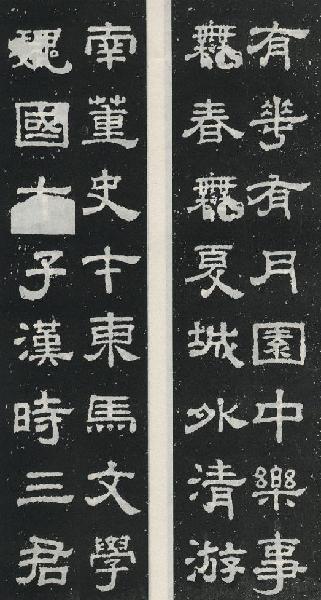 有華有月園中樂事
無春無夏城外清游
南董史才東馬文學
魏國七子漢時三君